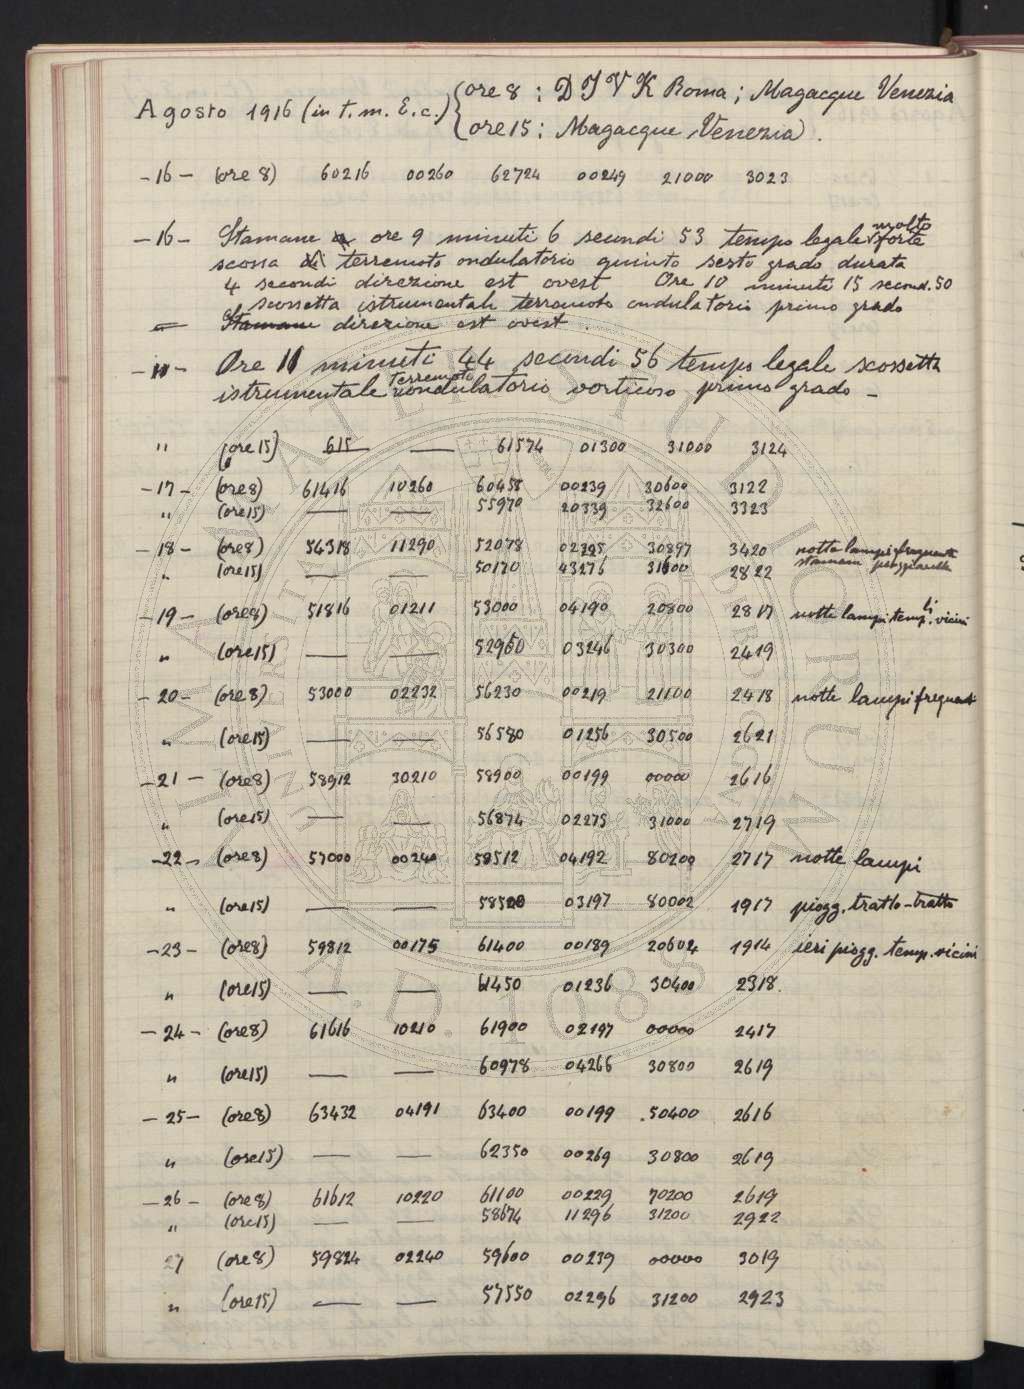 Agosto 1916 (in t. m. E. c.) { ore 8 : D I V K Roma ; Magacque Venezia
{ ore 15 : Magacque Venezia .
- 16 - (ore 8) 60216 00260 62724 00249 21000 3023
- 16 - Stamane ore 9 minuti 6 secondi 53 tempo legale molto forte
scossa di terremoto ondulatorio quinto sesto grado durata
4 secondi direzione est ovest Ore 10 minuti 15 second. 50
scossetta istrumentale terremoto ondulatorio primo grado
Stamane direzione est ovest .
- 11 - Ore 11 minuti 44 secondi 56 tempo legale scossetta
istrumentale terremoto ondulatorio vorticoso primo grado -
" (ore 15) 615 — 61574 01300 31000 3124
- 17 - (ore 8) 61416 10260 60458 00239 30600 3122
" (ore 15) — — 55970 20339 32600 3323
- 18 - (ore 8) 54318 11290 52078 02225 30897 3420 notte lampi frequenti
" (ore 15) — — 50170 43276 31600 2822 stamani pioggerella
- 19 - (ore 8) 51816 01211 53000 04190 20800 2817 notte lampi temp.li vicini
" (ore 15) — — 52960 03246 30300 2419
- 20 - (ore 8) 53000 02232 56230 00219 21100 2418 notte lampi frequenti
" (ore 15) — — 56580 01256 30500 2621
- 21 - (ore 8) 58912 30210 58900 00199 00000 2616
" (ore 15) — — 56874 02275 31000 2719
- 22 - (ore 8) 57000 00240 58512 04192 80200 2717 notte lampi
" (ore 15) — — 58520 03197 80002 1917 piogg. tratto-tratto
- 23 - (ore 8) 59812 00175 61400 00189 20602 1914 ieri piogg. temp. vicini
" (ore 15) — — 61450 01236 30400 2318
- 24 - (ore 8) 61616 10210 61900 02197 00000 2417
" (ore 15) — — 60978 04266 30800 2619
- 25 - (ore 8) 63432 04191 63400 00199 50400 2616
" (ore 15) — — 62350 00269 30800 2619
- 26 - (ore 8) 61612 10220 61100 00229 70200 2619
" (ore 15) — — 58674 11296 31200 2922
27 (ore 8) 59824 02240 59600 00239 00000 3019
" (ore 15) — — 57550 02296 31200 2923
ALMA MATER STUDIORUM
A.D. 1088